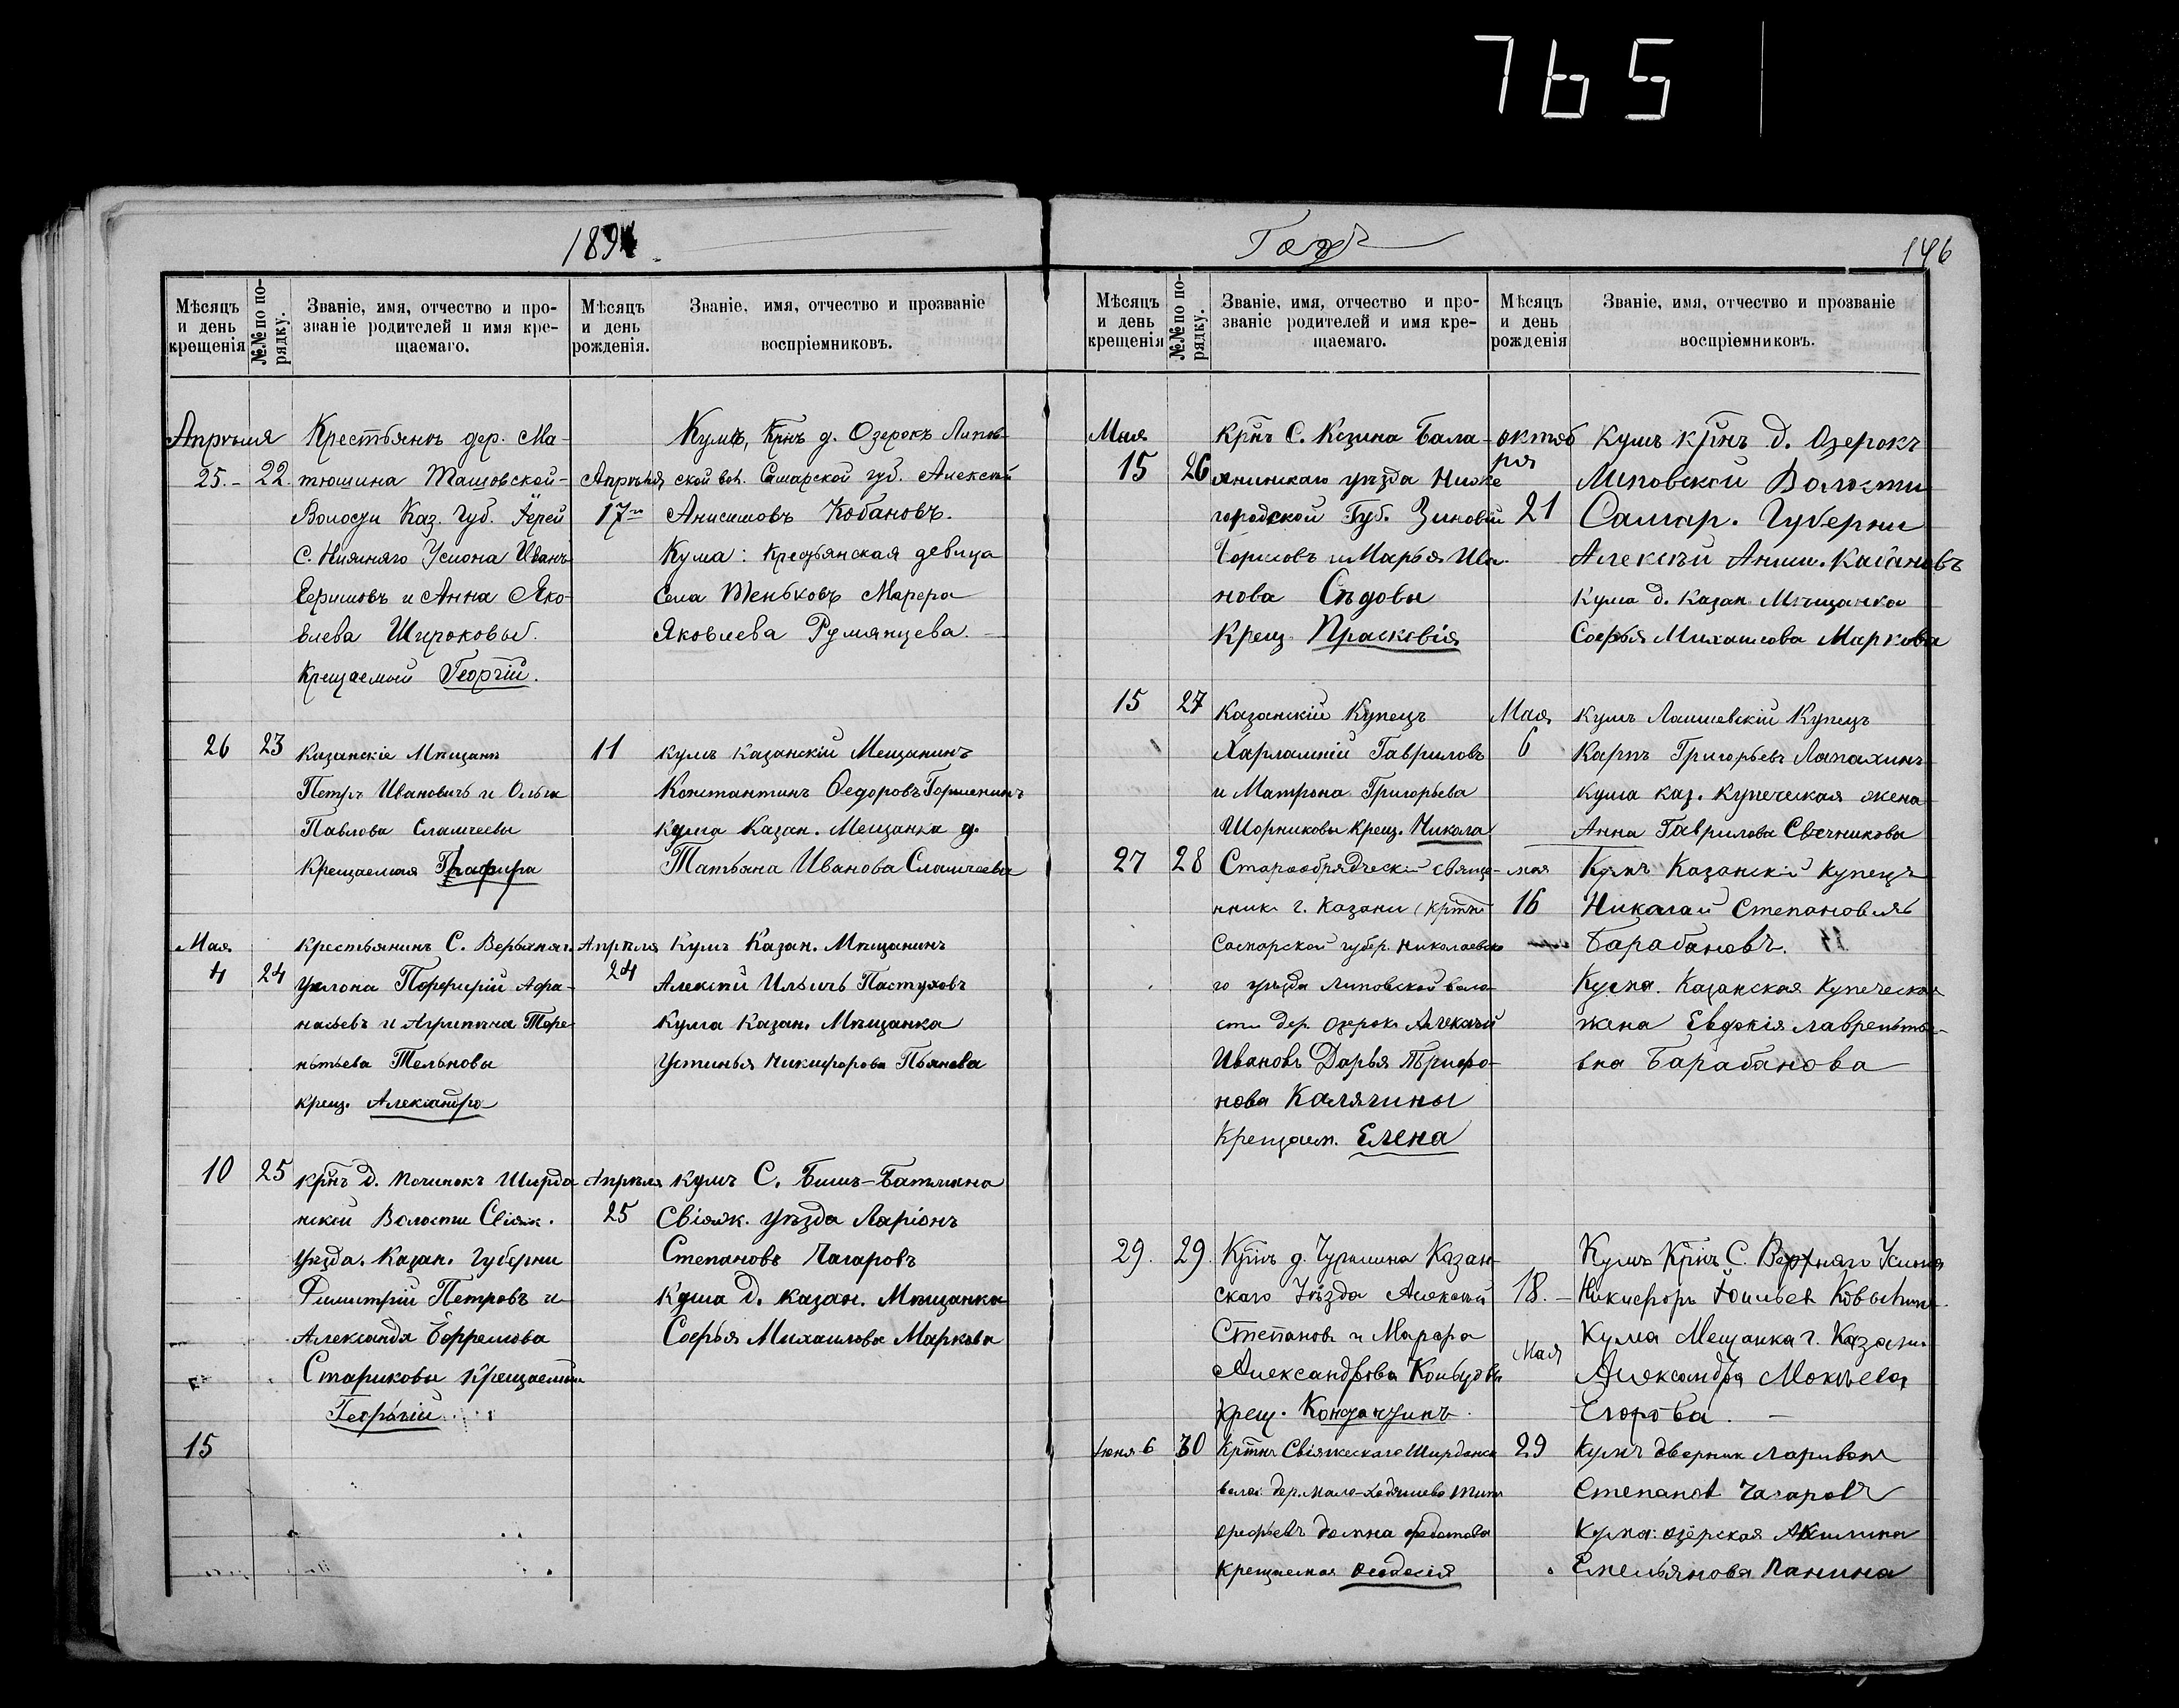 765
1894
Мѣсяцъ и день крещенія
№№ по порядку.
Званіе, имя, отчество и прозваніе родителей и имя крещаемаго.
Мѣсяцъ и день рожденія.
Званіе, имя, отчество и прозваніе воспріемниковъ.
Апрѣля
25. 22.
Крестьянъ дер. Ма-
тюшина Ташовской
Волости Каз. Губ. Іерей
С. Нижняго Услона Иванъ
Ефимовъ и Анна Яко-
влева Широковы.
Крещаемый Георгій.
Апрѣля
17
Кумъ, Крнъ д. Озерокъ Липов-
ской вол. Самарской губ. Алексѣй
Анисимовъ Кобановъ.
Кума: Крестьянская девица
Села Теньковъ Марфа
Яковлева Румянцева.
26 23
Казанскіе Мѣщане
Петръ Ивановичъ и Ольга
Павлова Сламчеевы
Крещаемая Глафира
11
Кумъ Казанскій Мещанинъ
Константинъ Ѳедоровъ
Кума Казан. Мещанка д.
Татьяна Иванова Сламчеева
Мая
4 24
Крестьянинъ С. Верхняго
Услона Порфирій Афа-
насьевъ и Агрипина Тере-
нтьева Тельновы
крещ. Александра
Апрѣля
24
Кумъ Казан. Мѣщанинъ
Алексѣй Ильичъ Пастуховъ
Кума Казан. Мѣщанка
Устинья Никифорова Пьянова
10 25
Крнъ д. Починокъ Ширда-
нской Волости Свіяж.
уѣзда. Казан. Губерни
Димитрій Петровъ и
Александра Ефремова
Стариковы Крещаемый
Георгій
Апрѣля
25
Кумъ С. Бишъ-Батмана
Свіяж. уѣзда Ларіонъ
Степановъ Чагаровъ
Кума д. Казан. Мѣщанка
Софья Михаилова Маркова
15
Годъ
146
Мѣсяцъ и день крещенія
№№ по порядку.
Званіе, имя, отчество и прозваніе родителей и имя крещаемаго.
Мѣсяцъ и день рожденія
Званіе, имя, отчество и прозваніе воспріемниковъ.
Мая
15 26
Крнъ С. Козина Бала-
хнинскаго уѣзда Ниже
городской Губ. Зиновій
Борисовъ и Марья Ива-
нова Сѣдовы
Крещ. Прасковія
октяб
ря
21
Кумъ крнъ д. Озерокъ
Липовской Волости
Самар. Губерни
Алексѣй Аниси. Кабановъ
Кума д. Казан. Мѣщанка
Софья Михаилова Маркова
15 27
Казанскій Купецъ
Харлампій Гавриловъ
и Матрона Григорьева
Шорниковы Крещ. Никола
Мая
6
Кумъ Лаишевскій Купецъ
Карпъ Григорьевъ Лапахинъ
Кума Каз. Купеческая жена
Анна Гаврилова Свечникова
27 28
Старообрядческій свяще-
нникъ г. Казани (крстн
Самарской губер. Николаевска
го уѣзда Липовской воло-
сти дер. Озерокъ Алексѣй
Ивановъ Дарья Трифо-
нова Калягины
Крещаем. Елена
мая
16
Кумъ Казанскій Купецъ
Николай Степановичъ
Барабановъ.
Кума. Казанская Купеческая
жена Евдокія Лаврентье-
вна Барабанова
29. 29.
Крнъ д. Чурилина Казан-
скаго Уѣзда Алексѣй
Степановъ и Марфа
Александрова
крещ.
18.
Мая
Кумъ Крнъ С. Верхняго Услона
Никифоръ
Кума Мещанка г. Казани
Александра Мокѣева
Егорова.
Іюня 6 30
Крстнъ Свіяжскаго Ширданск
волос. дер. Мало-Ходяшево
Домна Федотова
Крещаемая Ѳеодосія
29
Кумъ дворник Ларивон
Степанов Чагаровъ
Кума: озерская Акилина
Емельянова Панина